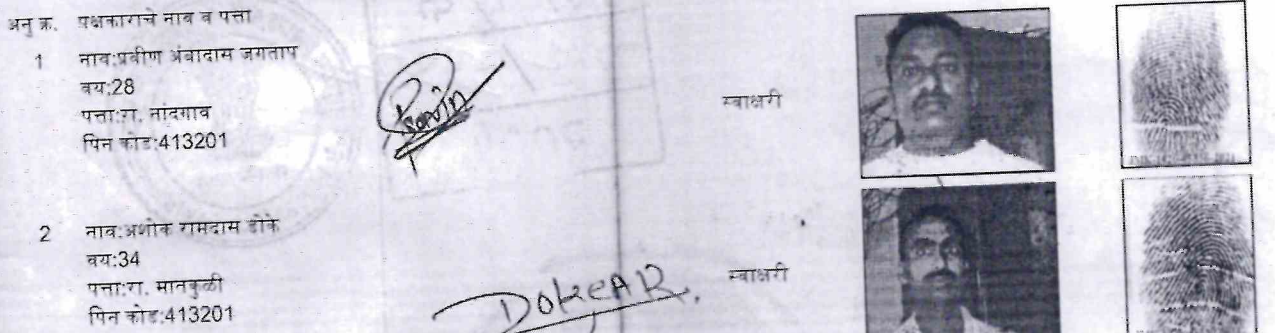 अनु क्र. पक्षकाराचे नाव व पत्ता
1 नाव:प्रवीण अंबादास जगताप
वय:28
पत्ता:रा. नांदगाव
पिन कोड:413201
Pravin
स्वाक्षरी
2 नाव:अशोक रामदास डोके
वय:34
पत्ता:रा. मातकुळी
पिन कोड:413201
DOKe A R.
स्वाक्षरी